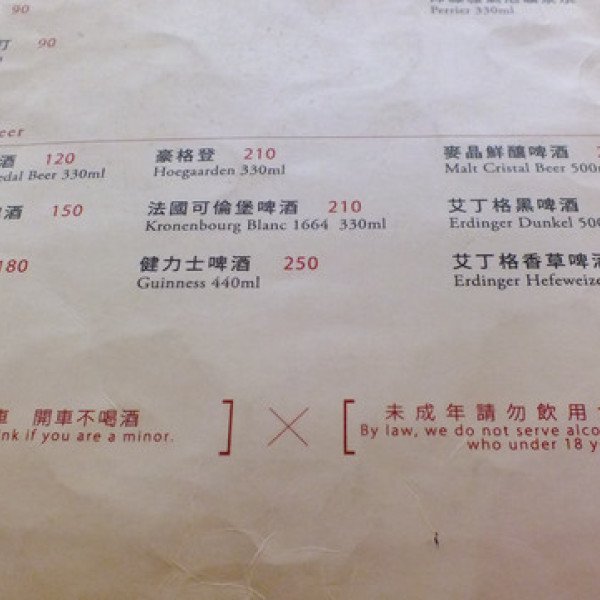 90
Perrier 330ml
90
eer
酒 120 豪格登 210 麥晶鮮釀啤酒
edal Beer 330ml Hoegaarden 330ml Malt Cristal Beer 500
酒 150 法國可倫堡啤酒 210 艾丁格黑啤酒
Kronenbourg Blanc 1664 330ml Erdinger Dunkel 50
180 健力士啤酒 250 艾丁格香草啤
Guinness 440ml Erdinger Hefeweize
車 開車不喝酒 ] × [ 未成年請勿飲用
nk if you are a minor. By law, we do not serve alco
who under 18 y